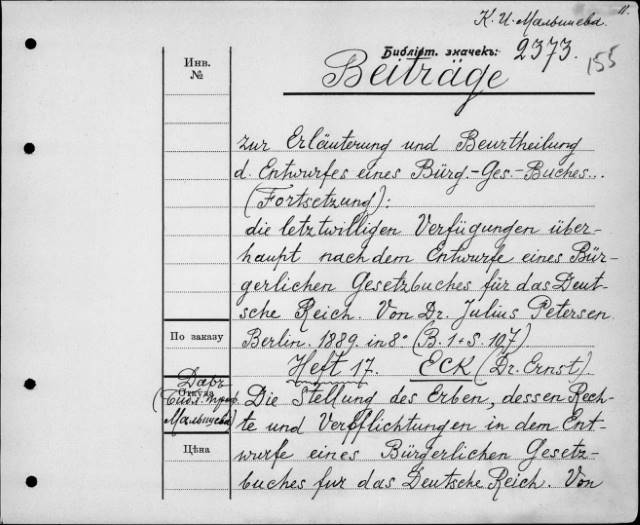 К. И. Малышева.
11.
Библіот. значекъ:
2373.
155
Инв.
№
Beiträge
zur Erläuterung und Beurtheilung
d. Entwurfes eines Bürg.-Ges.-Buches...
(Fortsetzung):
die letztwilligen Verfügungen über-
haupt nach dem Entwurfe eines Bür-
gerlichen Gesetzbuches für das Deut-
sche Reich. Von Dr. Julius Petersen.
По заказу
Berlin. 1889. in 8° (B. 1 + S. 107)
Heft 17. ECK (Dr. Ernst).
Даръ
Откуда
(Библ. проф.
Малышева)
Die Stellung des Erben, dessen Rech-
te und Verpflichtungen in dem Ent-
Цѣна
wurfe eines Bürgerlichen Gesetz-
buches fur das Deutsche Reich. Von